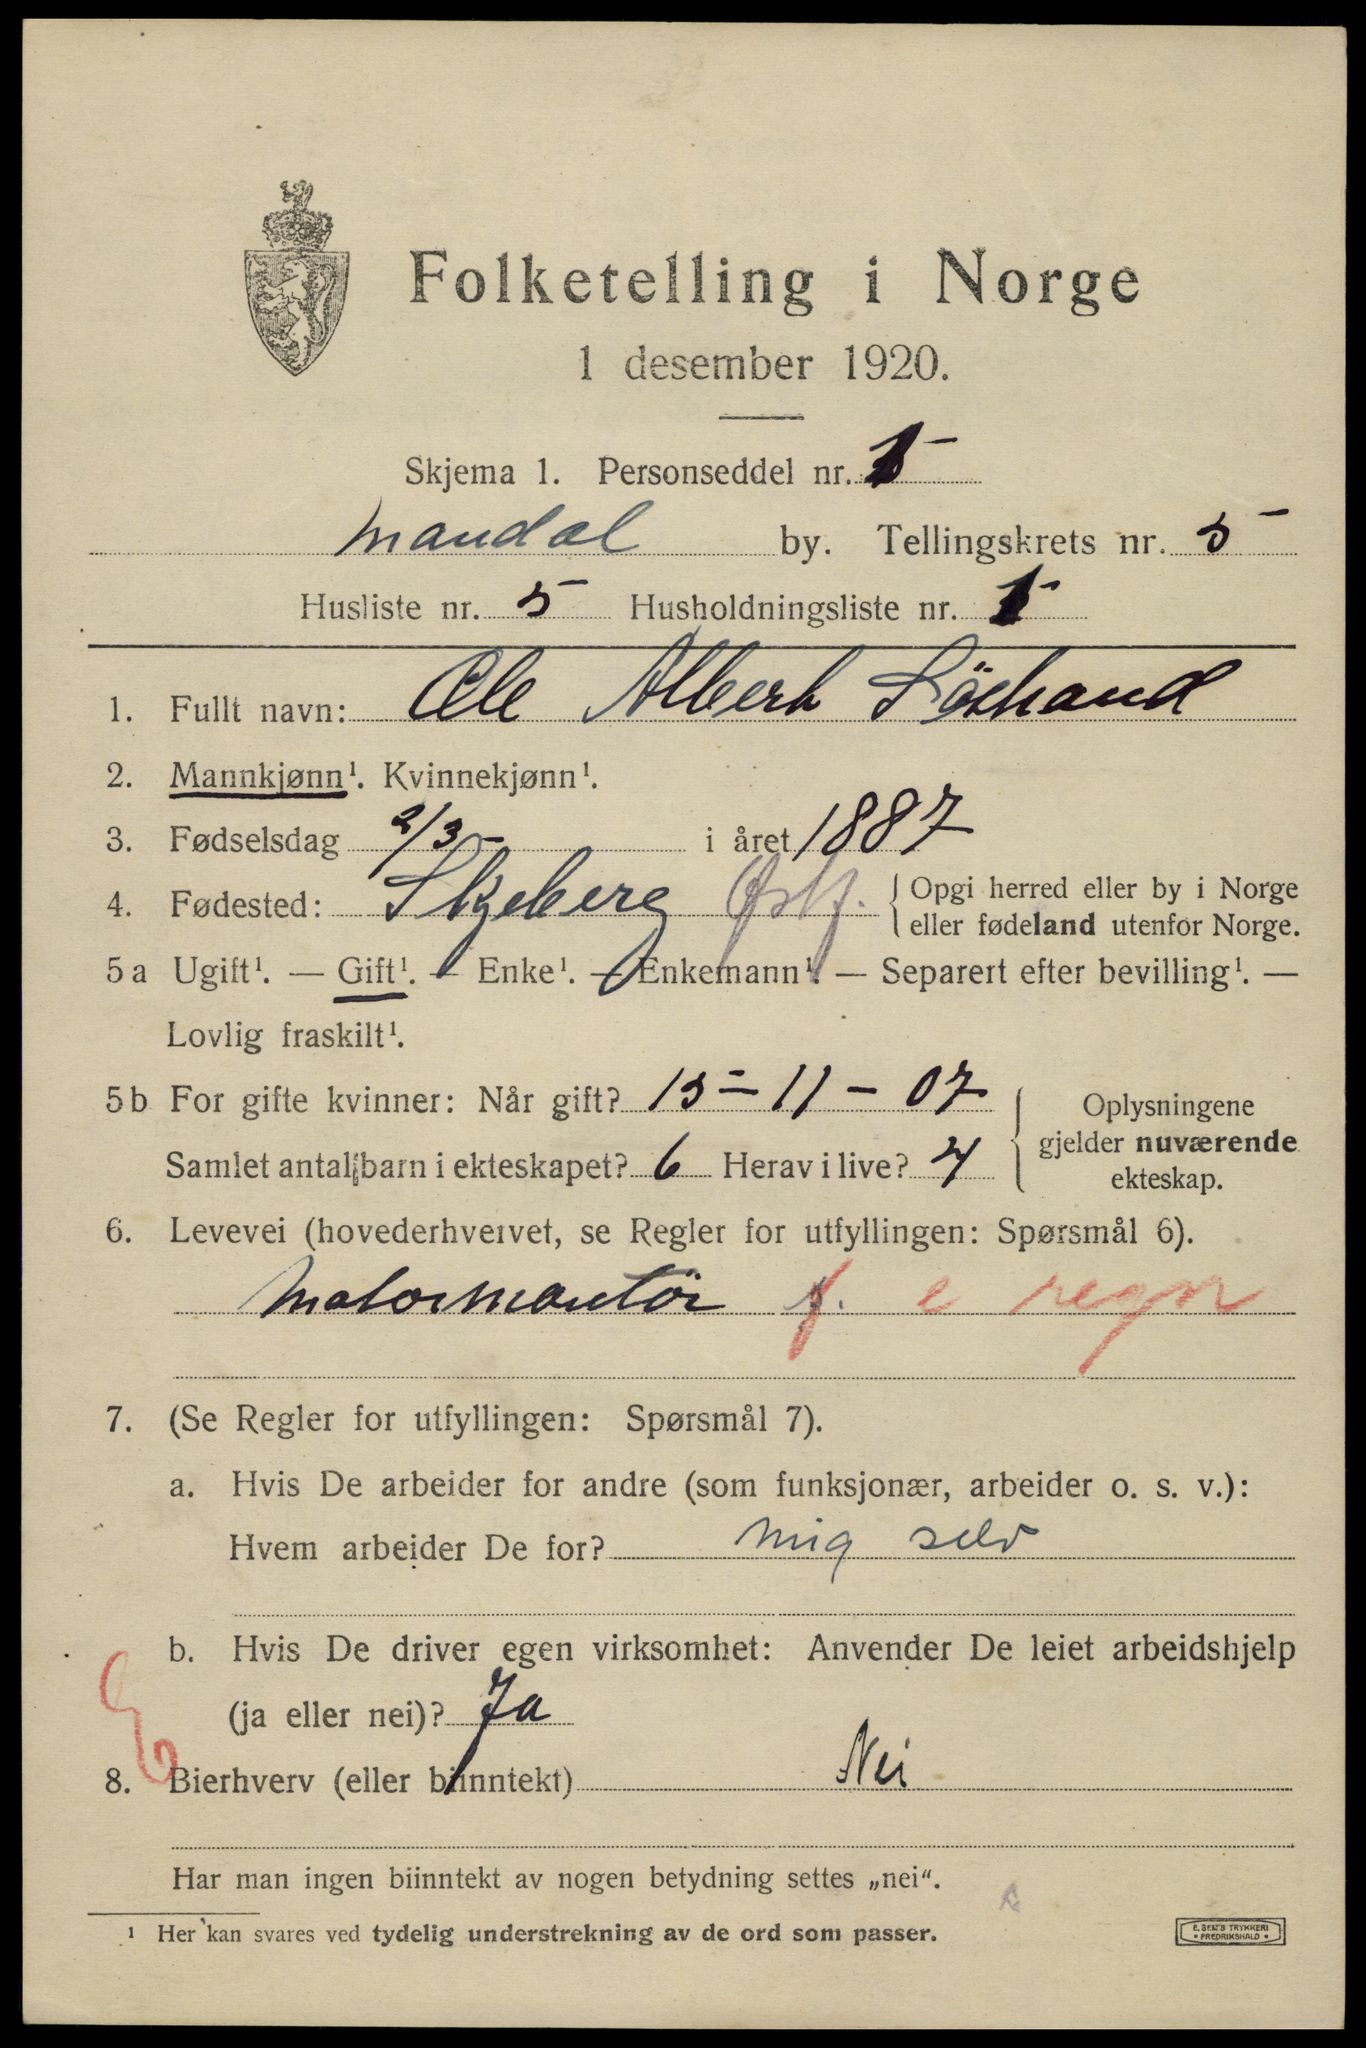 Folketelling i Norge
1 desember 1920.
Skjema 1. Personseddel nr.
Mandal by. Tellingskrets nr. 5
Husliste nr. 5 Husholdningsliste nr.
1. Fullt navn: Ole Albert
2. Mannkjønn¹. Kvinnekjønn¹.
3. Fødselsdag 2/3- i året 1887
4. Fødested: Skjeberg Østf. { Opgi herred eller by i Norge
eller fødeland utenfor Norge.
5a Ugift¹. — Gift¹. — Enke¹. — Enkemann¹. — Separert efter bevilling¹. —
Lovlig fraskilt¹.
5b For gifte kvinner: Når gift? 15 - 11 - 07
Samlet antal barn i ekteskapet? 6 Herav i live? 4
Oplysningene
gjelder nuværende
ekteskap.
6. Levevei (hovederhvervet, se Regler for utfyllingen: Spørsmål 6).
Motormontör f. e regn
7. (Se Regler for utfyllingen: Spørsmål 7).
a. Hvis De arbeider for andre (som funksjonær, arbeider o. s. v.):
Hvem arbeider De for? mig selv
b. Hvis De driver egen virksomhet: Anvender De leiet arbeidshjelp
(ja eller nei)? Ja
8. Bierhverv (eller biinntekt) Nei
Har man ingen biinntekt av nogen betydning settes „nei“.
¹ Her kan svares ved tydelig understrekning av de ord som passer.
E. SEM'S TRYKKERI
• FREDRIKSHALD •